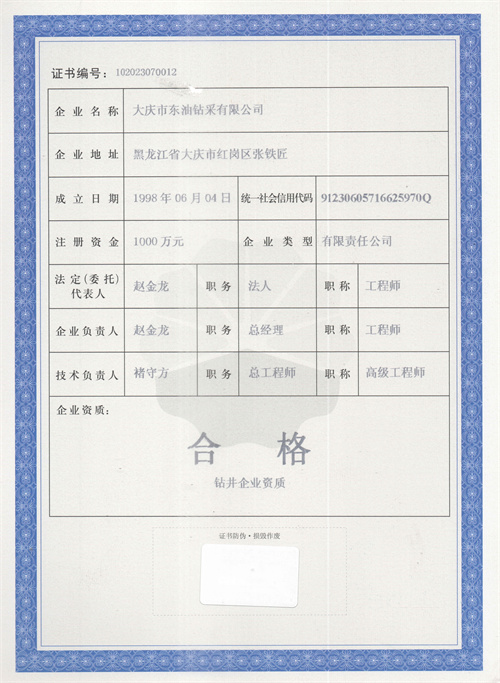 证书编号：102023070012
企业名称 大庆市东油钻采有限公司
企业地址 黑龙江省大庆市红岗区张铁匠
成立日期 1998年06月04日 统一社会信用代码 91230605716625970Q
注册资金 1000万元 企业类型 有限责任公司
法定(委托)代表人 赵金龙 职务 法人 职称 工程师
企业负责人 赵金龙 职务 总经理 职称 工程师
技术负责人 褚守方 职务 总工程师 职称 高级工程师
企业资质：
合格
钻井企业资质
证书防伪·损毁作废